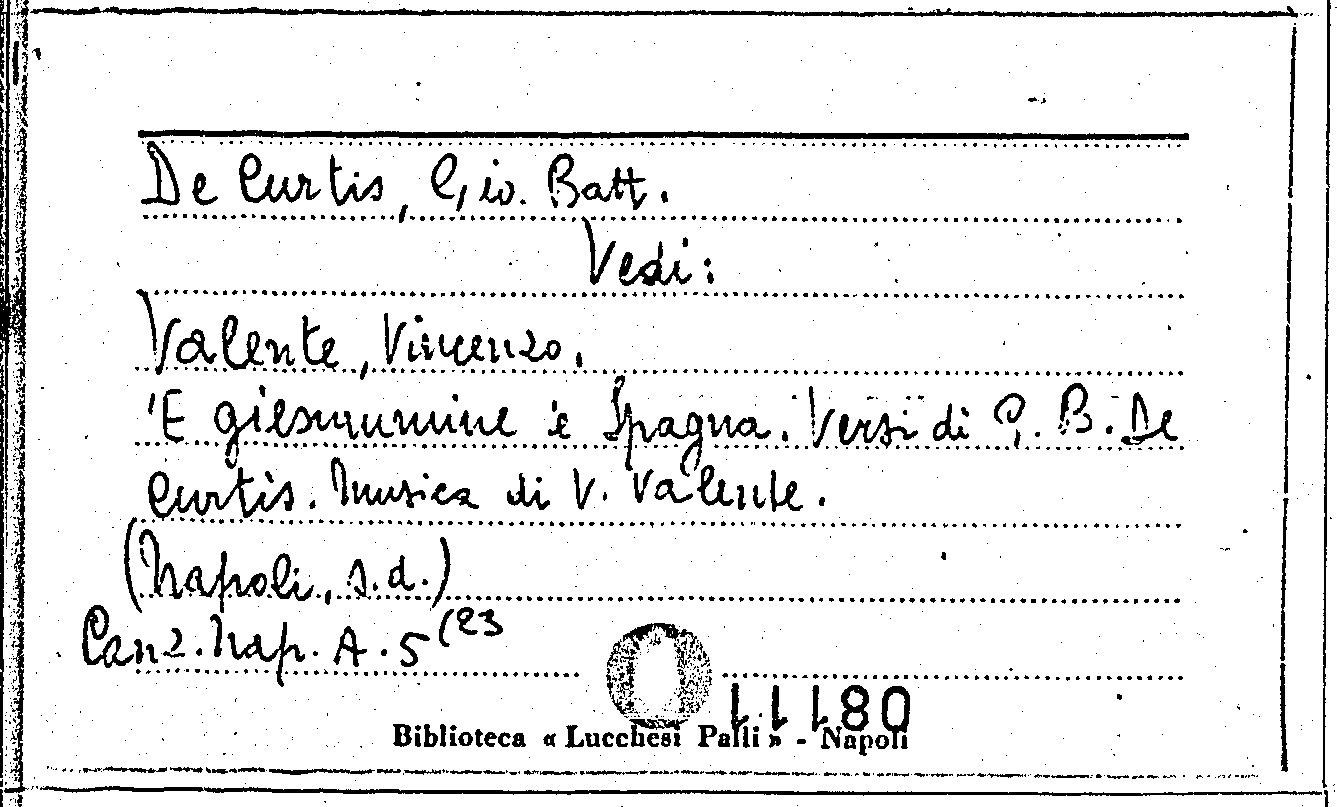 De Curtis, Gio. Batt.
Vedi:
Valente, Vincenzo.
'E giesummine 'e Spagna. Versi di G. B. De
Curtis. Musica di V. Valente.
(Napoli, s.d.)
Canz. Nap. A. 5 (23
11180
Biblioteca « Lucchesi Palli » - Napoli